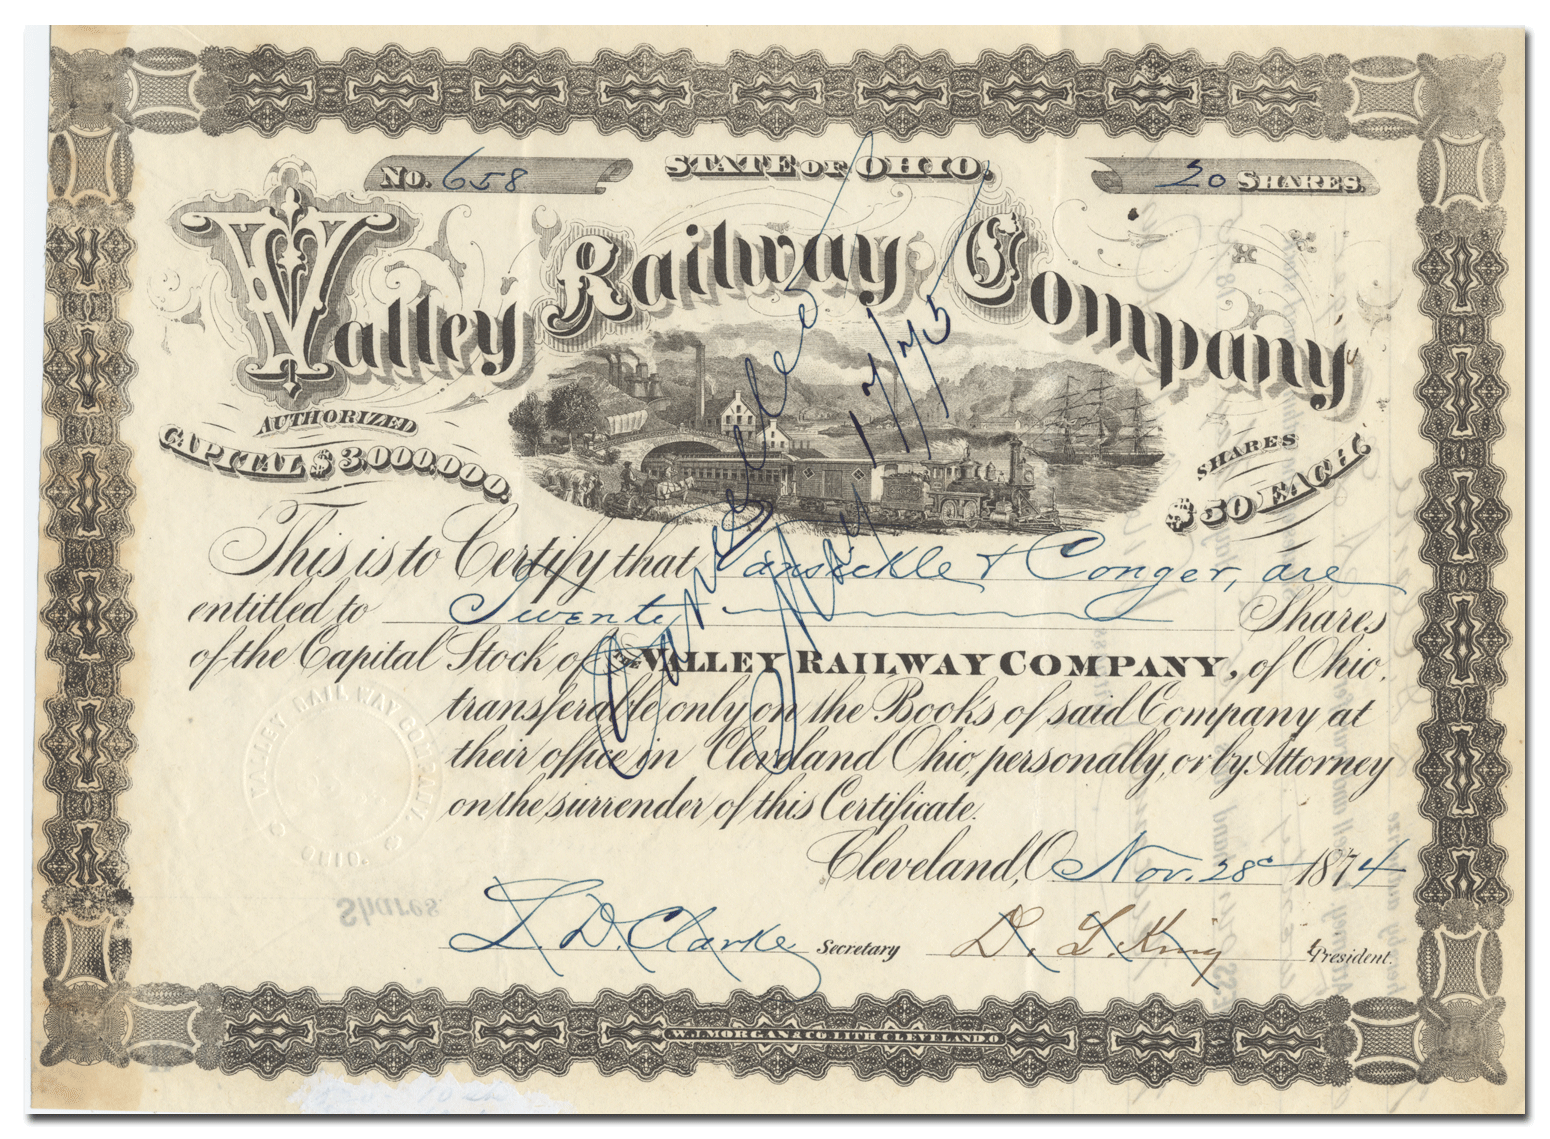 No. 658
STATE OF OHIO.
20 SHARES.
Valley Railway Company
AUTHORIZED
CAPITAL $3,000,000.
SHARES
$50 EACH
Cancelled
May 17/75
This is to Certify that Vansickle & Conger, are
entitled to Twenty Shares
of the Capital Stock of THE VALLEY RAILWAY COMPANY, of Ohio,
transferable only on the Books of said Company at
their office in Cleveland Ohio, personally, or by Attorney
on the surrender of this Certificate.
Cleveland, O. Nov. 28 1874
VALLEY RAILWAY COMPANY.
OHIO.
Shares.
L. D. Clarke Secretary D. L. King President.
W.J. MORGAN & CO. LITH. CLEVELAND. O